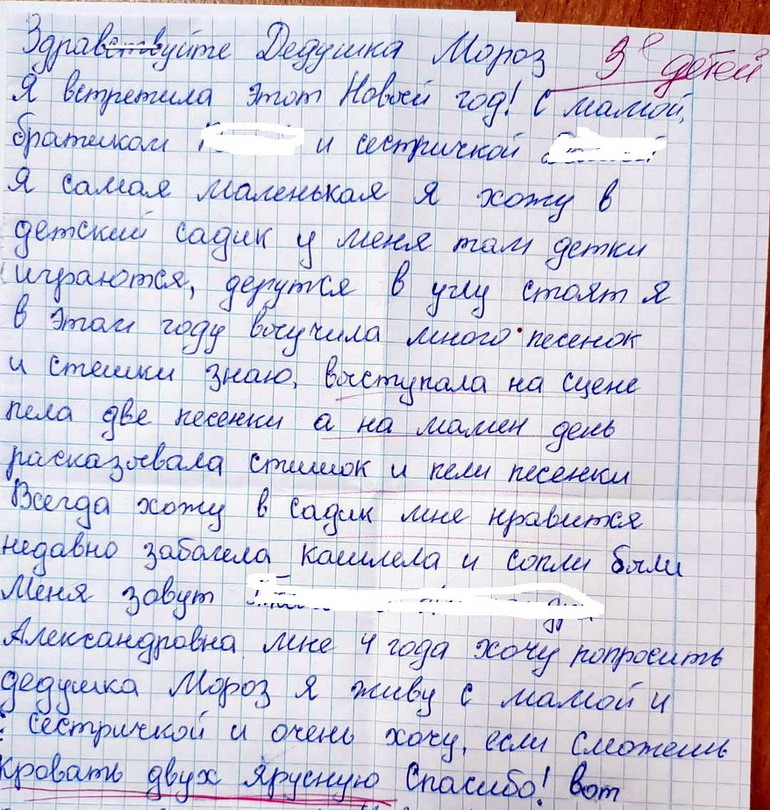 Здравствуйте Дедушка Мороз 3е детей
Я встретила этот Новый год! С мамой,
братиком и сестричкой
Я самая маленькая Я хожу в
детский садик у меня там детки
играются, дерутся в углу стоят Я
в этом году выучила много песенок
и стешки знаю, выступала на сцене
пела две песенки а на мамен день
расказывала стишок и пели песенки
Всегда хожу в садик мне нравится
недавно забалела кашлела и сопли были
Меня завут
Александровна мне 4 года хочу попросить
дедушка Мороз я живу с мамой и
сестричкой и очень хочу, если сможешь
кровать двух ярусную Спасибо! Вот